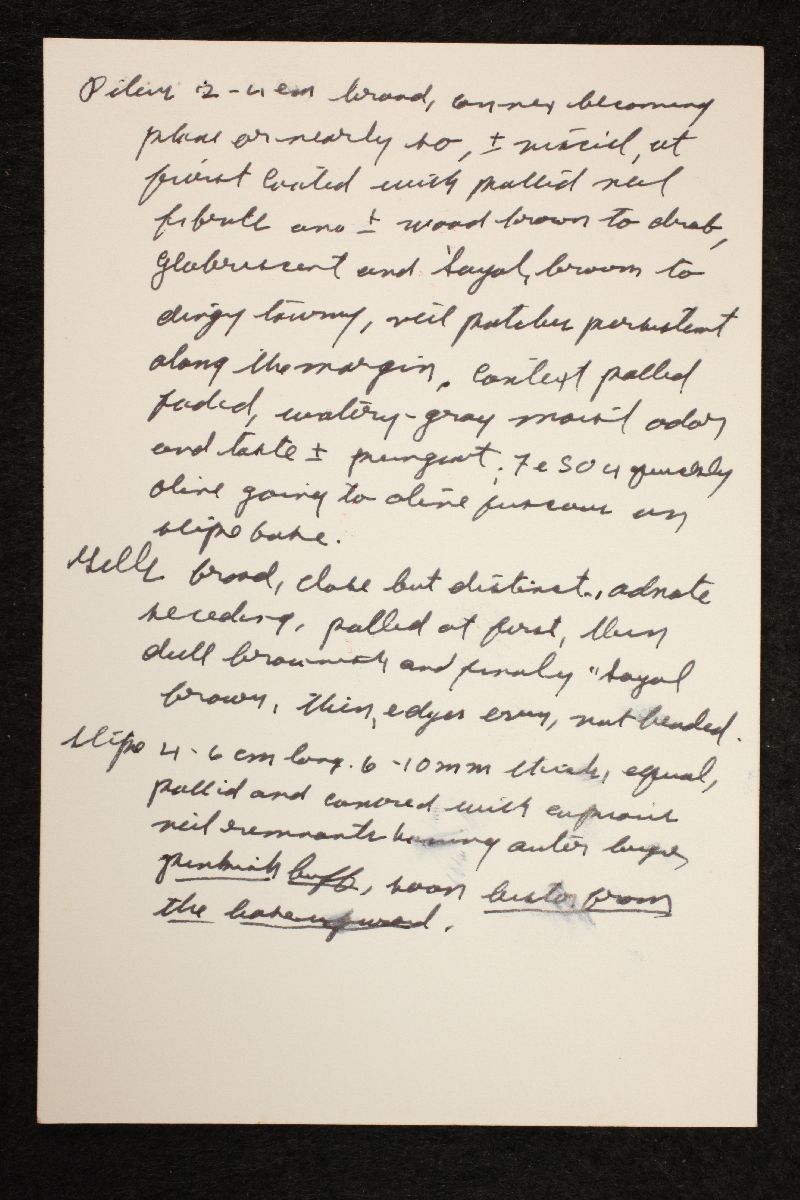 Pileus 2-4 cm broad, convex becoming
plane or nearly so, ± viscid, at
first coated with pallid veil
fibrils and ± wood brown to drab,
glabrescent and "sayal brown to
dingy tawny, veil patches persistent
along the margin. Context pallid
faded, watery-gray moist odor
and taste ± pungent; FeSO4 quickly
olive going to olive fuscous in
stipe base.
Gills broad, close but distinct., adnate
seceding, pallid at first, then
dull brownish and finaly "sayal
brown, thin, edges even, not beaded.
Stipe 4-6 cm long. 6-10 mm thick, equal,
pallid and covered with copious
veil remnants having outer layer
pinkish buff, soon lusto from
the base upward.